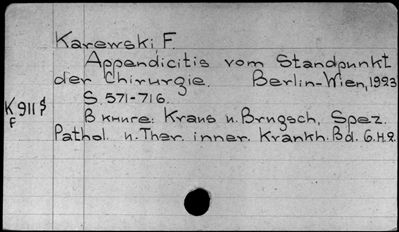 Karewski F.
Appendicitis vom Standpunkt
der Chirurgie. Berlin-Wien, 1923
S. 571-716.
K 911 $
F
В книге: Kraus u. Brugsch, Spez.
Pathol. u. Ther. inner. Krankh. Bd. 6. H. 2.